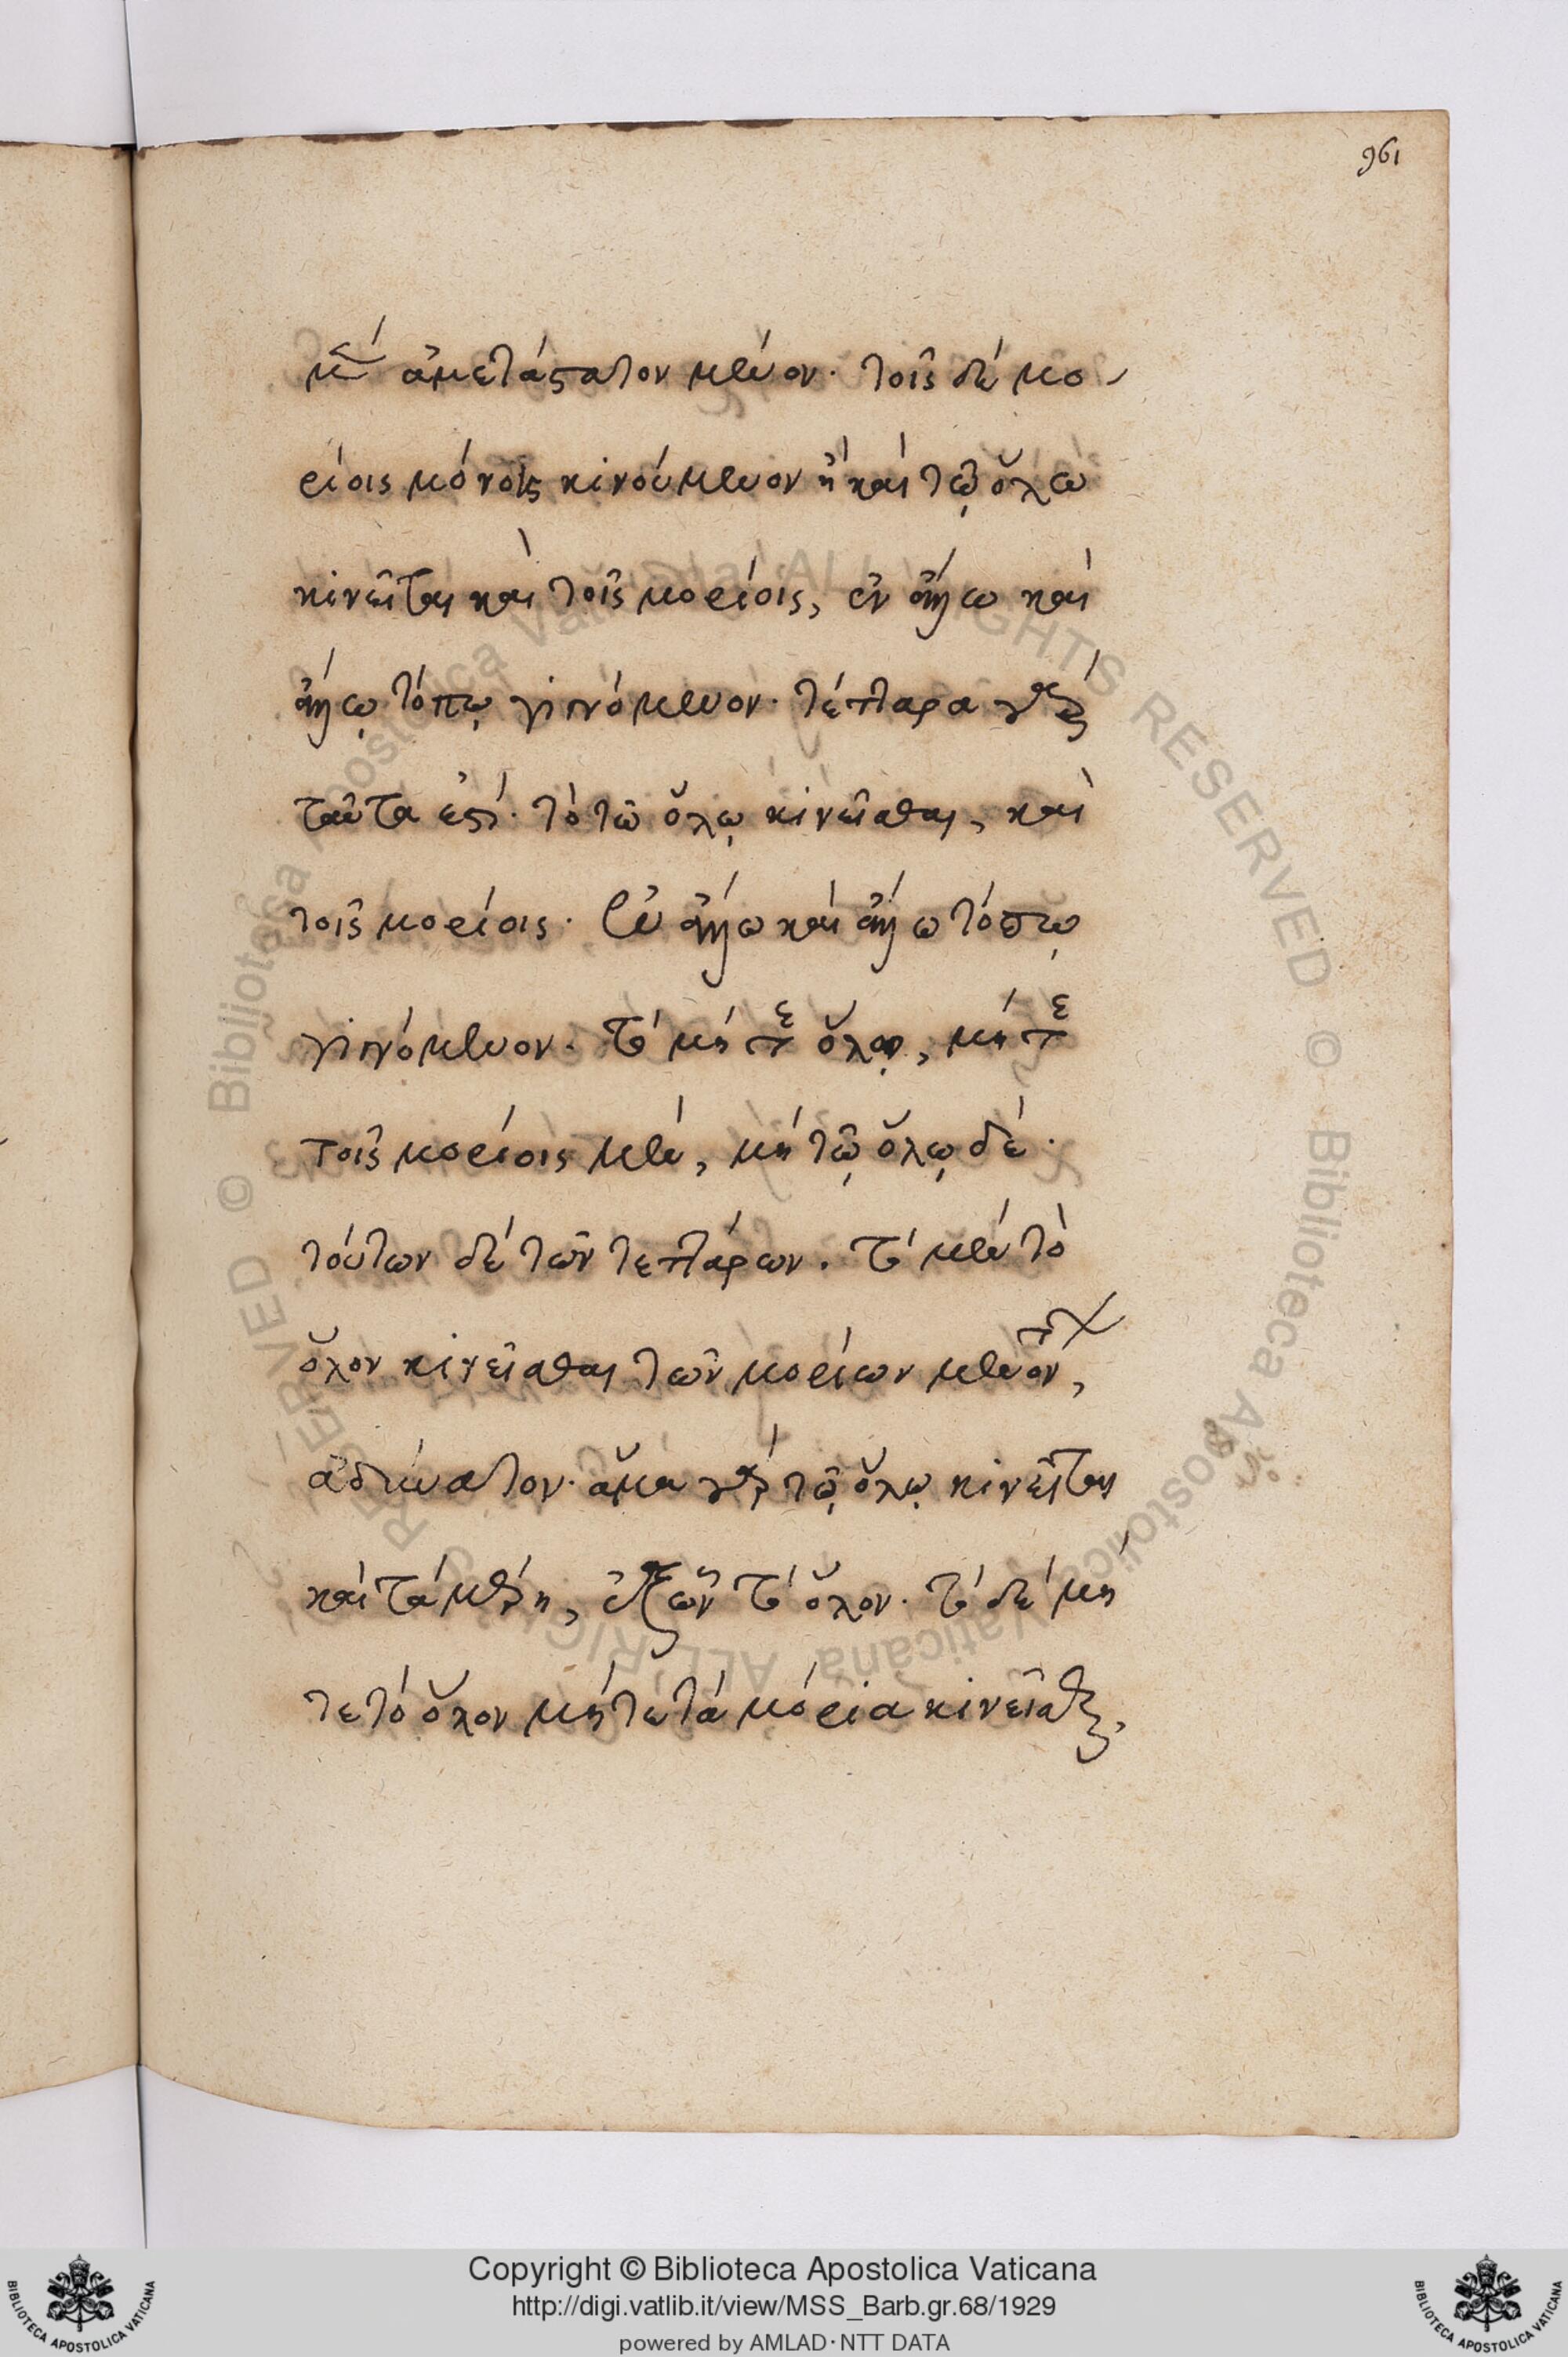 961
μὲν ἀμετάστατον μένον· τοῖς δὲ μο
ρίοις μόνοις κινούμενον ἢ καὶ τῷ ὅλω
κινεῖται καὶ τοῖς μορίοις, ἐν ἄλλω καὶ
ἄλλῳ τόπῳ γινόμενον· τέτταρα γὰρ
ταῦτα ἐστί· τὸ τῶ ὅλῳ κινεῖσθαι, καὶ
τοῖς μορίοις· ἐν ἄλλω καὶ ἄλλω τόπῳ
γινόμενον· τὸ μή τε ὅλῳ, μή τε
τοῖς μορίοις μὲν, μὴ τῷ ὅλῳ δέ·
τούτων δὲ τῶν τεττάρων. τὸ μὲν τὸ
ὅλον κινεῖσθαι τῶν μορίων μενόντων,
ἀδύνατον· ἅμα γὰρ τῷ ὅλῳ κινεῖται
καὶ τὰ μέρη, ἐξ ὧν τὸ ὅλον· τὸ δὲ μή
τε τὸ ὅλον μήτε τὰ μόρια κινεῖσθαι,
© Biblioteca Apostolica Vaticana ALL RIGHTS RESERVED © Biblioteca Apostolica Vaticana ALL RIGHTS RESERVED
Copyright © Biblioteca Apostolica Vaticana
http://digi.vatlib.it/view/MSS_Barb.gr.68/1929
powered by AMLAD·NTT DATA
BIBLIOTECA APOSTOLICA VATICANA
BIBLIOTECA APOSTOLICA VATICANA